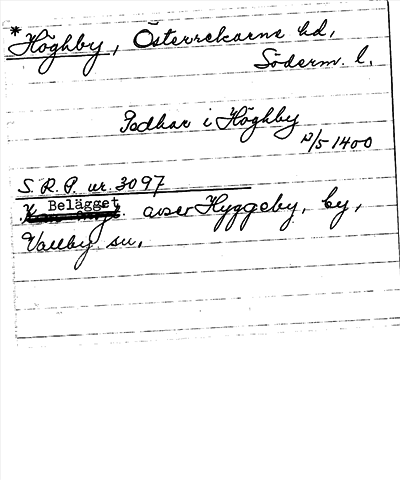 *Höghby, Österrekarne hd,
Söderm. l.
Godhar i Höghby
12/5 1400
S. R. P. nr. 3097
Belägget avser Hyggeby, by,
Vallby sn.